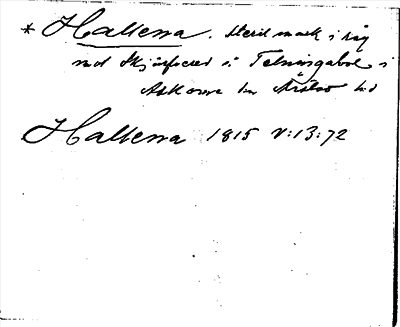 * Hallena. Steril mark i råg
med Skjulsered i Telningabol i
Askome sn Årstad hd
Hallena 1815 V:13:72